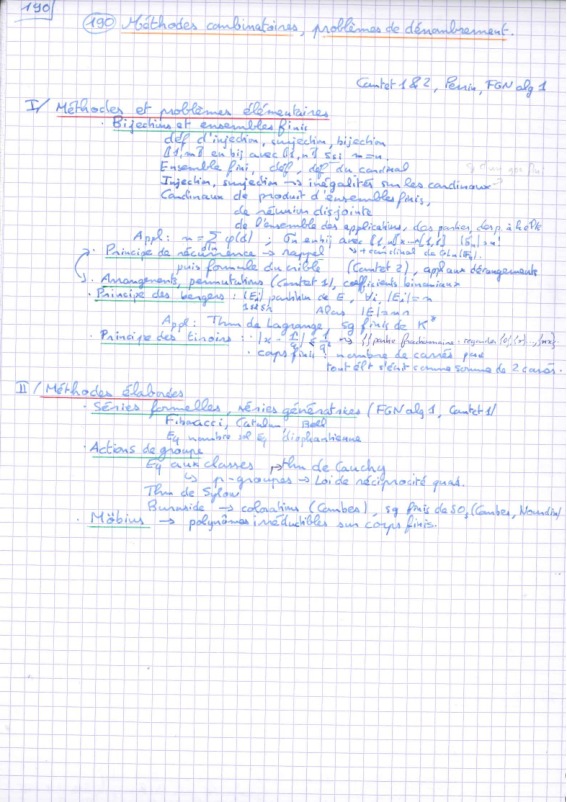 190
190 Méthodes combinatoires, problèmes de dénombrement.
Comtet 1 & 2, Perrin, FGN alg 1
I/ Méthodes et problèmes élémentaires
· Bijections et ensembles finis
déf d'injection, surjection, bijection
[1,m] en bij avec [1,n] ssi m=n.
Ensemble fini, déf, déf du cardinal
Injection, surjection → inégalités sur les cardinaux
Cardinaux de produit d'ensembles finis,
de réunion disjointe
de l'ensemble des applications, des parties,
Appl: n = Σ φ(d) ; σn en bij avec |Sn| = n!
d|n
· Principe de récurrence → rappel + cardinal de
puis formule du crible (Comtet 2), appl aux dérangements
· Arrangements, permutations (Comtet 1), coefficients binomiaux
· Principe des bergers : (Ei) partition de E, ∀i, |Ei|=n
1≤i≤k Alors |E|=
Appl: Thm de Lagrange, sg finis de K*
· Principe des tiroirs : · |x - p/q| ≤ 1/q² partie fractionnaire
· corps finis : nombre de carrés puis
tout élt s'écrit comme somme de 2 carrés.
II/ Méthodes élaborées
· Séries formelles, séries génératrices (FGN alg 1, Comtet 1)
Fibonacci, Catalan Bell
Eq nombre sol Eq diophantienne
· Actions de groupe
Eq aux classes → thm de Cauchy
↳ p-groupes → Loi de réciprocité quad.
Thm de Sylow
Burnside → colorations (Combes), sg finis de SO3 (Combes,
· Möbius → polynômes irréductibles sur corps finis.